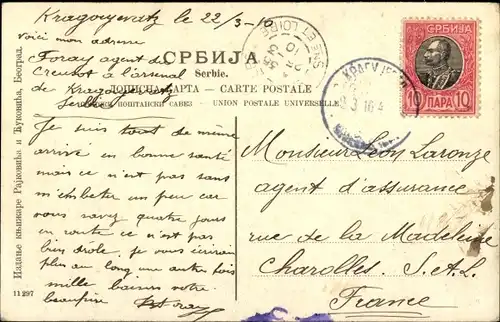 Kragoujevatz le 22/3-10
Voici mon adresse
Foray agent du
Creusot à l'arsenal
de Kragoujevatz
Serbie
СРБИЈА
Serbie.
ДОПИСНА КАРТА — CARTE POSTALE
СВЕТСКИ ПОШТАНСКИ САВЕЗ - UNION POSTALE UNIVERSELLE
Je suis tout de même
arrivé en bonne santé
mais ce n'est pas sans
m'embêter un peu car
vous savez quatre jours
en route ce n'est pas
bien drôle. je vous écrirai
plus au long une autre fois
mille baisers votre
beaupère Foray
Издање књижаре Рајковића и Ђуковића, Београд.
11297
СРБИЈА
10 ПАРА 10
SAÔNE ET LOIRE
КРАГУЈЕВАЦ
Monsieur Léon Laronze
agent d'assurances
rue de la Madeleine
Charolles. S.&L.
France